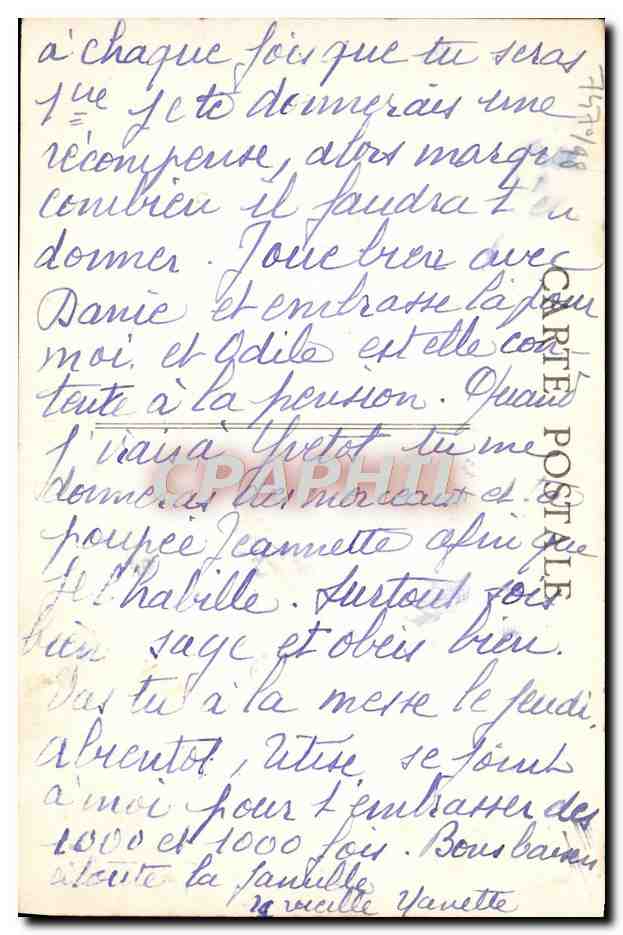 à chaque fois que tu seras
1ère je te donnerais une
récompense, alors marque
combien il faudra t'en
donner. Joue bien avec
Danie et embrasse la pour
moi. et Odile est elle con-
tente à la pension. Quand
j'irais à Yvetot tu me
donneras des morceaux et ta
poupée Jeannette afin que
je l'habille. Surtout sois
bien sage et obeis bien.
Vas tu à la messe le jeudi.
abientot, se joint
à moi pour t'embrasser des
1000 et 1000 fois. Bons baisers
à toute la famille
ta vieille Yanette
CARTE POSTALE
CPAPHIL
747-198